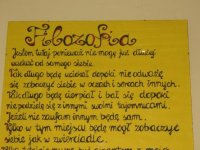 Filozofia
Jestem tutaj ponieważ nie mogę już dłużej
uciekać od samego siebie.
Tak długo będę uciekał dopóki nie odważę
się zobaczyć siebie w oczach i sercach innych.
Tak długo będę cierpiał i bał się dopóki
nie podzielę się z innymi swoimi tajemnicami.
Jeżeli nie zaufam innym będę sam.
Tylko w tym miejscu będę mógł zobaczyć
siebie jak w zwierciadle.